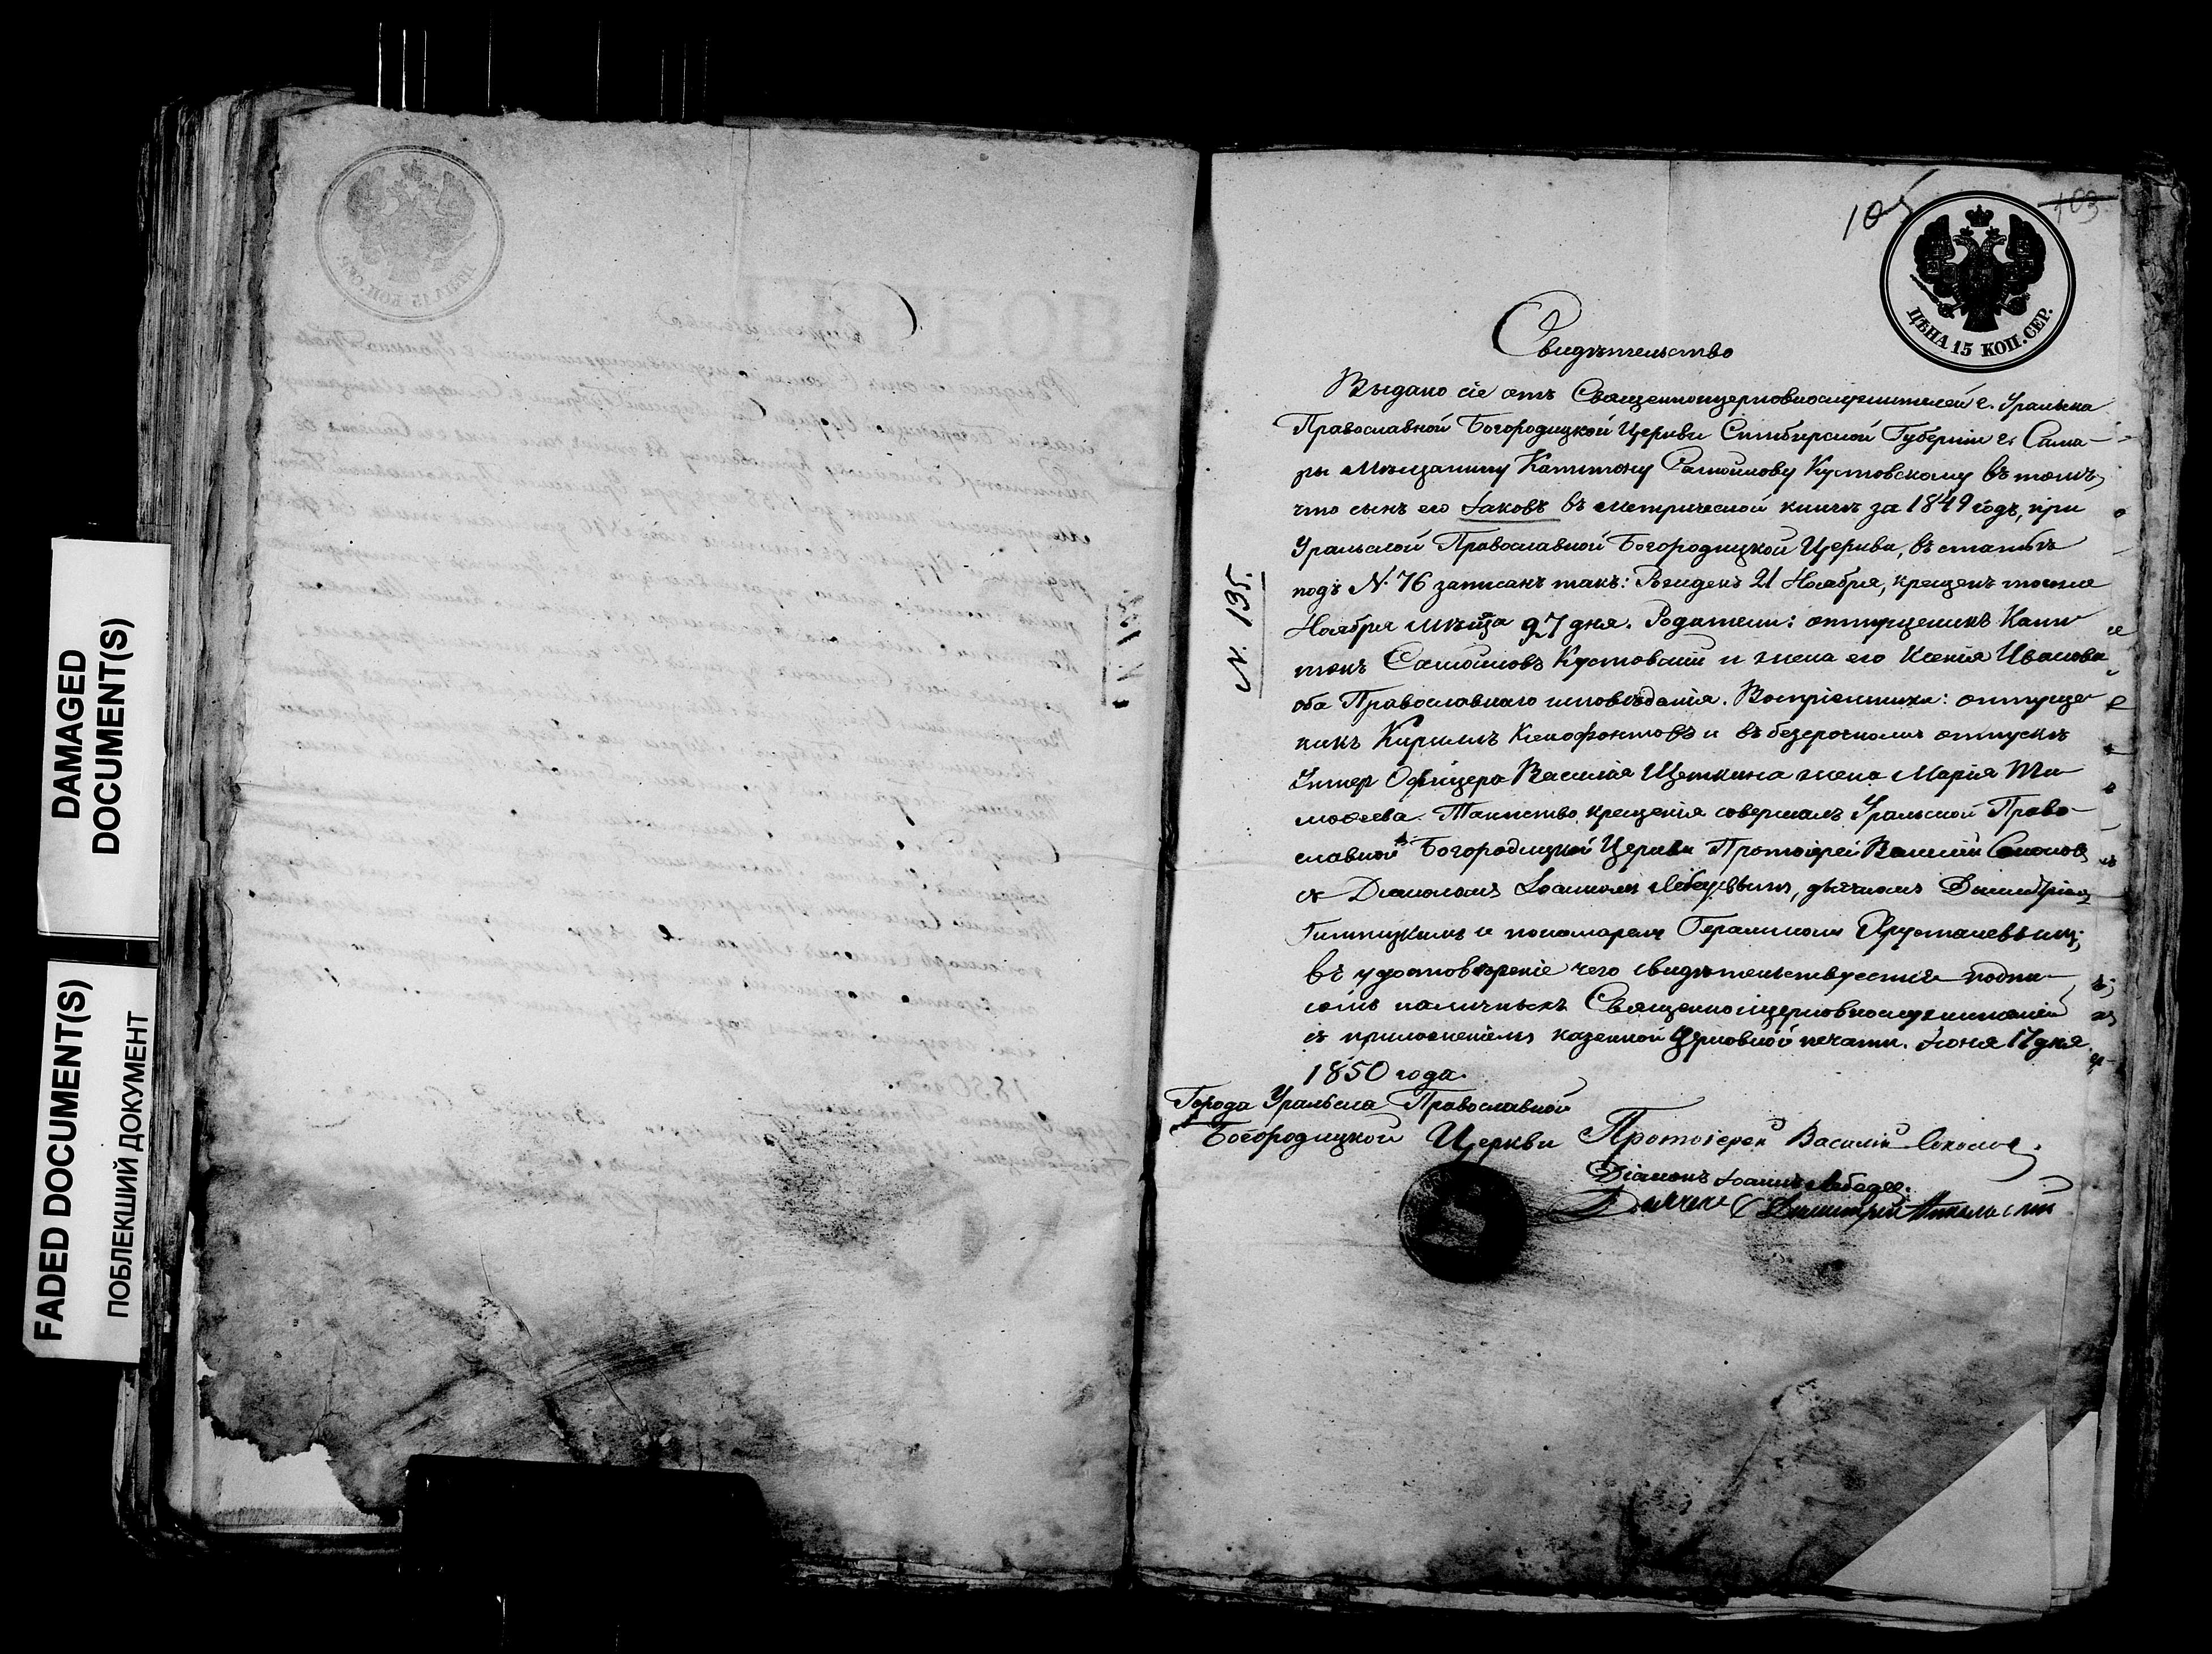 DAMAGED
DOCUMENT(S)
FADED DOCUMENT(S)
ПОБЛЕКШИЙ ДОКУМЕНТ
105
103
ЦѢНА 15 КОП. СЕР.
Свидѣтельство
Выдано сіе отъ Священноцерковнослужителей г. Уральска
Православной Богородицкой Церкви Симбирской Губерніи г. Сама-
ры Мѣщанину Капитону Самойлову Кустовскому въ томъ,
что сынъ его Іаковъ въ метрической книгѣ за 1849 годъ, при
Уральской Православной Богородицкой Церкви, въ статьѣ
подъ N. 76 записанъ такъ: Рожденъ 21 Ноября, крещенъ тогоже
Ноября мѣсяца 27 дня. Родители: отпущеникъ Капи-
тонъ Самойловъ Кустовскій и жена его Ксенія Иванова
оба Православнаго исповѣданія. Воспріемники: отпуще-
никъ Кирилъ Ксенофонтовъ и въ безсрочномъ отпускѣ
Унтер Офицера Василія Щеткина жена Марія Ти-
моѳеева. Таинство крещенія совершалъ Уральской Право-
славной Богородицкой Церкви Протоіерей Василій Соколовъ
съ Діакономъ Іоанномъ Лебедевымъ, дьячкомъ Димитріемъ
и пономаремъ Хрусталевымъ;
въ удостовѣреніе чего свидѣтельствуемъ подпи-
сомъ наличныхъ Священноцерковнослужителей
съ приложеніемъ казенной Церковной печати. Іюня 17 дня
1850 года.
N. 135.
Города Уральска Православной
Богородицкой Церкви Протоіерей Василій Соколов.
Діаконъ Іоаннъ Лебедев.
Дьячекъ Димитрий Никольский